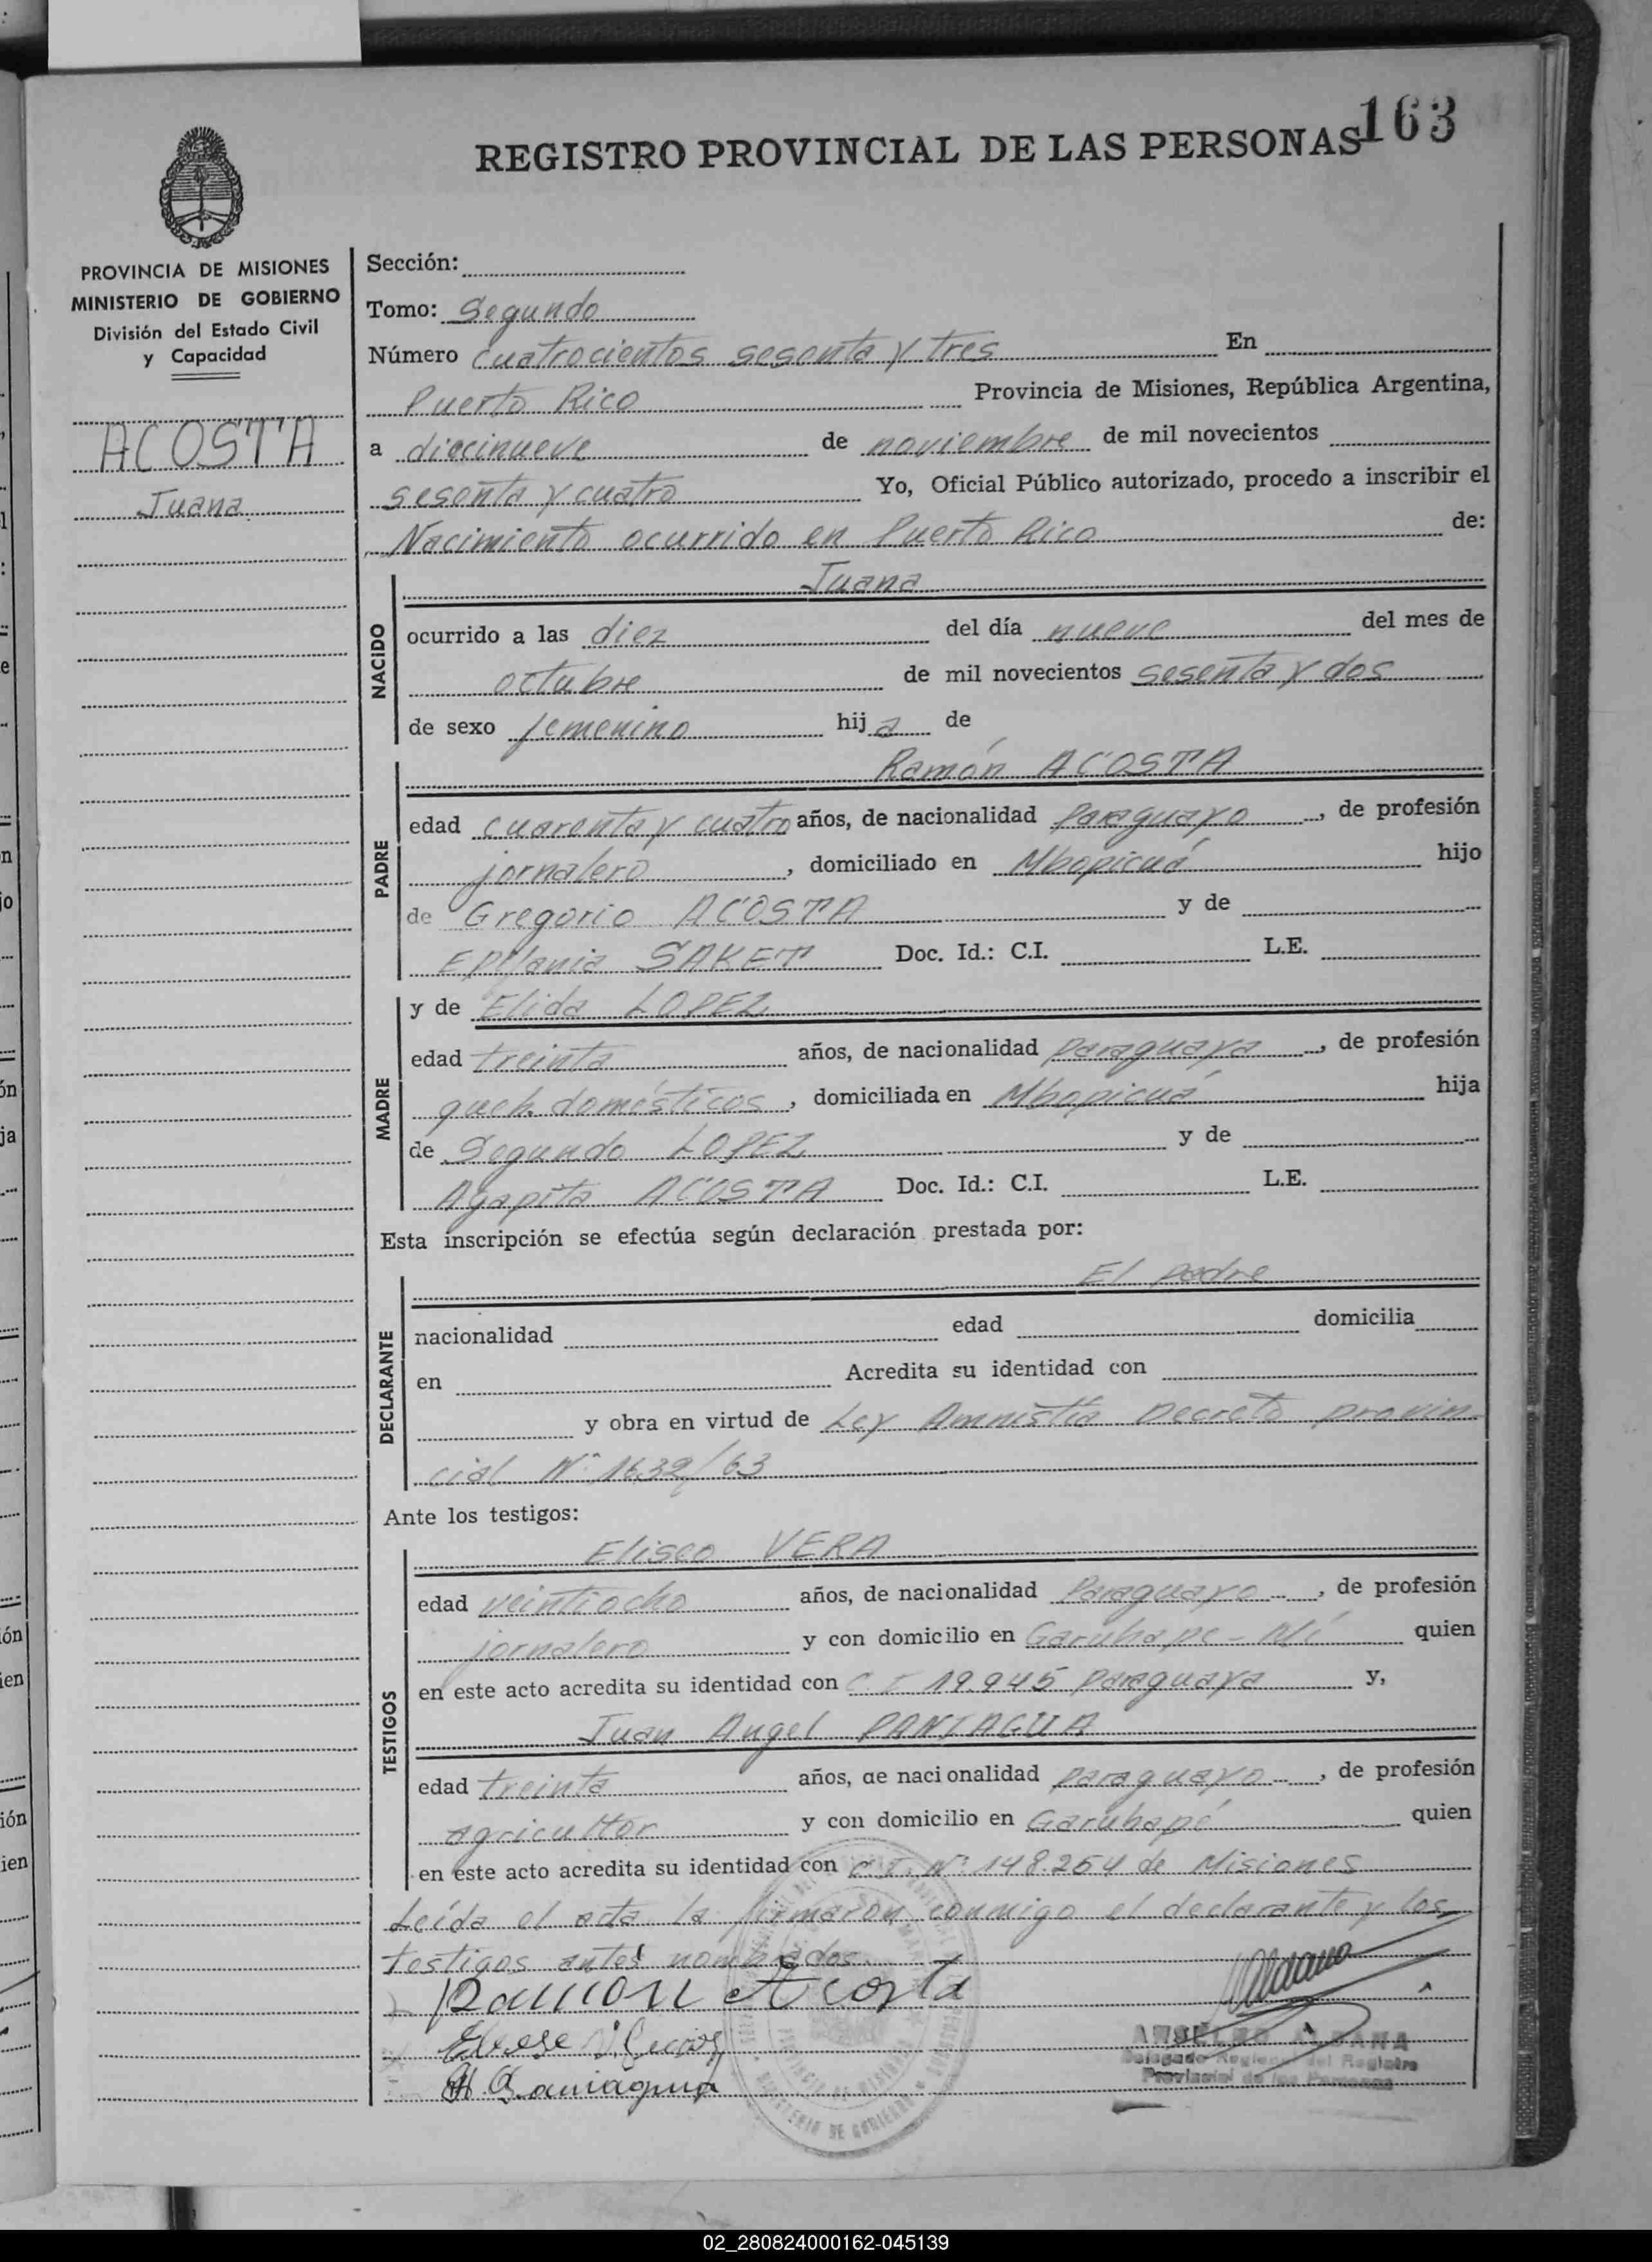 163
REGISTRO PROVINCIAL DE LAS PERSONAS
PROVINCIA DE MISIONES
MINISTERIO DE GOBIERNO
División del Estado Civil
y Capacidad
ACOSTA
Juana
Sección:
Tomo: Segundo
Número Cuatrocientos sesenta y tres En
Puerto Rico Provincia de Misiones, República Argentina,
a diecinueve de noviembre de mil novecientos
sesenta y cuatro Yo, Oficial Público autorizado, procedo a inscribir el
Nacimiento ocurrido en Puerto Rico de:
NACIDO
Juana
ocurrido a las diez del día nueve del mes de
octubre de mil novecientos sesenta y dos
de sexo femenino hija de
PADRE
Ramón ACOSTA
edad cuarenta y cuatro años, de nacionalidad Paraguayo, de profesión
jornalero, domiciliado en Mbopicuá hijo
de Gregorio ACOSTA y de
Epifania SAKET Doc. Id.: C.I. L.E.
MADRE
y de Elida LOPEZ
edad treinta años, de nacionalidad paraguaya, de profesión
queh. domésticos, domiciliada en Mbopicuá hija
de Segundo LOPEZ y de
Agapita ACOSTA Doc. Id.: C.I. L.E.
Esta inscripción se efectúa según declaración prestada por:
DECLARANTE
El padre
nacionalidad edad domicilia
en Acredita su identidad con
y obra en virtud de Ley Amnistía Decreto provin
cial Nº 1632/63
Ante los testigos:
TESTIGOS
Eliseo VERA
edad veintiocho años, de nacionalidad Paraguayo, de profesión
jornalero y con domicilio en Garuhape - Mí quien
en este acto acredita su identidad con C.I 19.945 paraguaya y,
Juan Angel PANIAGUA
edad treinta años, de nacionalidad paraguayo, de profesión
agricultor y con domicilio en Garuhapé quien
en este acto acredita su identidad con C.I. Nº 148.254 de Misiones
Leída el acta la firmaron conmigo el declarante y los
testigos antes nombrados.
Ramon Acosta
Paniagua
ANSELMO ALDANA
Delegado Regional del Registro
Provincial de las Personas
02_280824000162-045139